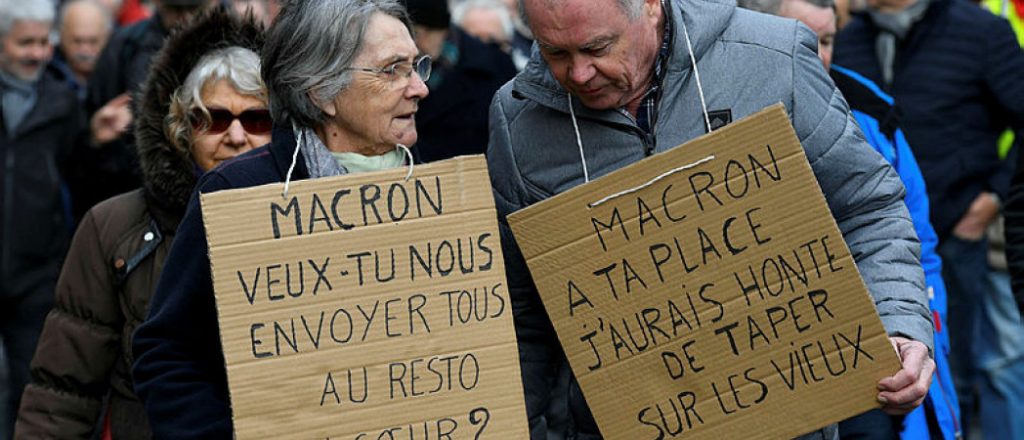 MACRON
VEUX-TU NOUS
ENVOYER TOUS
AU RESTO
CŒUR?
MACRON
A TA PLACE
J'AURAIS HONTE
DE TAPER
SUR LES VIEUX